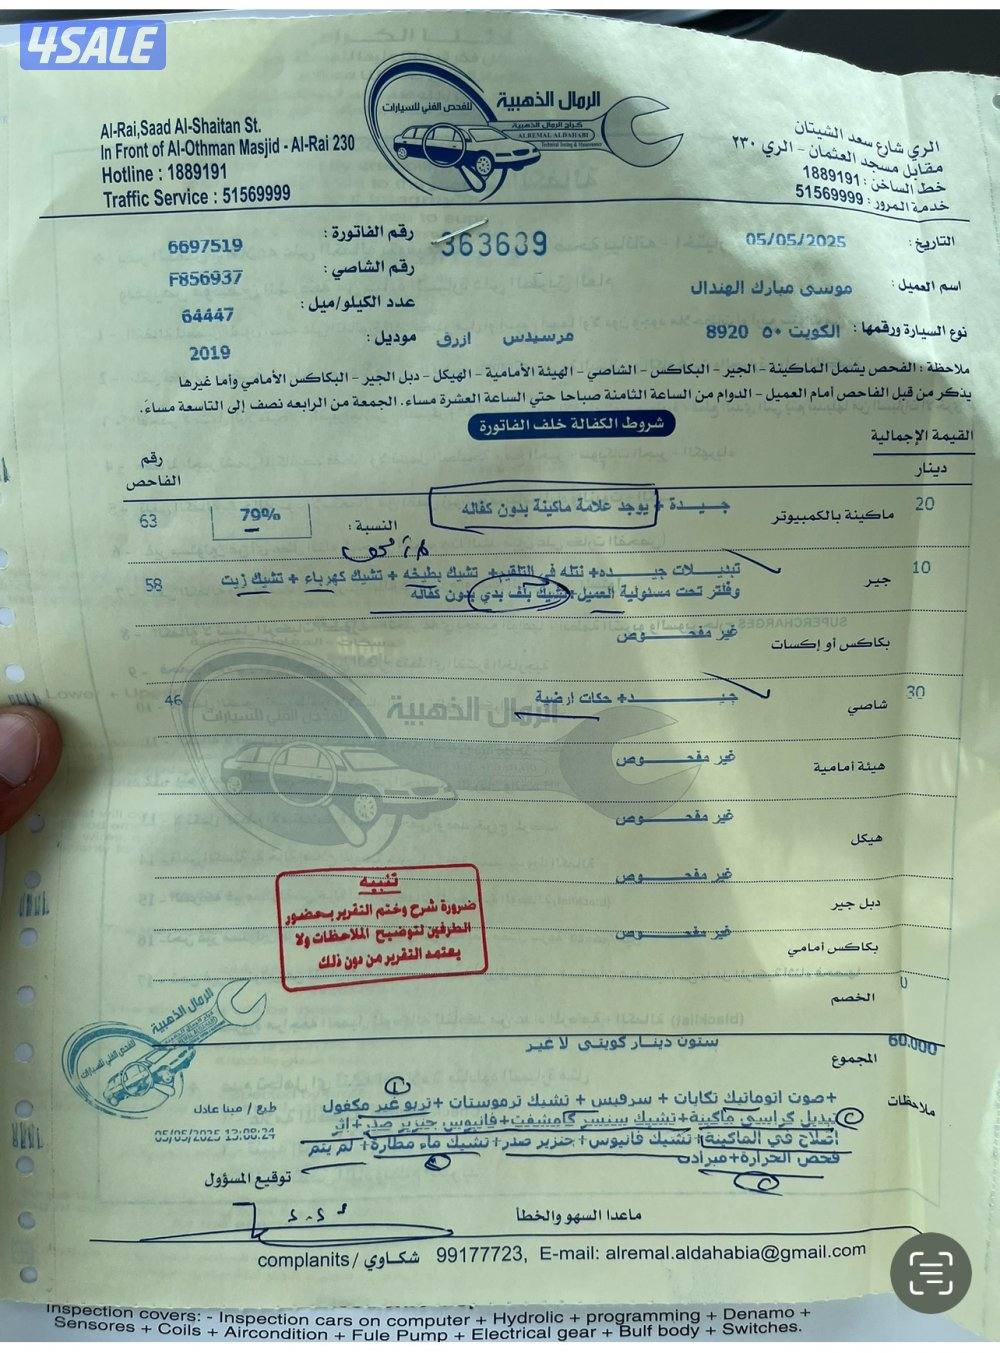 4SALE
Al-Rai,Saad Al-Shaitan St.
In Front of Al-Othman Masjid - Al-Rai 230
Hotline : 1889191
Traffic Service : 51569999
الرمال الذهبية
للفحص الفني للسيارات
كراج الرمال الذهبية
ALREMAL ALDAHABI
Technical Testing & Maintenance
الري شارع سعد الشيتان
مقابل مسجد العثمان - الري ٢٣٠
خط الساخن : 1889191
خدمة المرور : 51569999
التاريخ : 05/05/2025
363639
رقم الفاتورة : 6697519
اسم العميل : موسى مبارك الهندال
رقم الشاصي : F856937
نوع السيارة ورقمها : الكويت ٥٠ 8920
عدد الكيلو/ميل : 64447
مرسيدس ازرق
موديل : 2019
ملاحظة : الفحص يشمل الماكينة - الجير - البكاكس - الشاصي - الهيئة الأمامية - الهيكل - دبل الجير - البكاكس الأمامي وأما غيرها
يذكر من قبل الفاحص أمام العميل - الدوام من الساعة الثامنة صباحا حتي الساعة العشرة مساء. الجمعة من الرابعه نصف إلى التاسعة مساءً.
شروط الكفالة خلف الفاتورة
القيمة الإجمالية
دينار
رقم الفاحص
20 ماكينة بالكمبيوتر جيـدة + يوجد علامة ماكينة بدون كفاله
النسبة : 79% 63
10 جير تبديلات جيـده + نتله في التلقيم + تشيك بطيخه + تشيك كهرباء + تشيك زيت
وفلتر تحت مسئولية العميل + تشيك بلف بدي بدون كفاله 58
بكاكس أو إكسات غير مفحـوص
30 شاصي جيـد + حكات ارضية 46
هيئة أمامية غير مفحـوص
هيكل غير مفحـوص
دبل جير غير مفحـوص
بكاكس أمامي غير مفحـوص
تنبيه
ضرورة شرح وختم التقرير بحضور
الطرفين لتوضيح الملاحظات ولا
يعتمد التقرير من دون ذلك
0 الخصم
60.000 المجموع ستون دينار كويتي لا غير
ملاحظات +صوت اتوماتيك تكايات + سرفيس + تشيك ترموستات + تربو غير مكفول
+تبديل كراسي ماكينة + تشيك سنسر كامشفت + فانيوس جنزير صدر + اثر
اصلاح في الماكينة + تشيك فانيوس + جنزير صدر + تشيك ماء مطارة + لم يتم
فحص الحرارة + مبرادت
طبع / مينا عادل
05/05/2025 13:08:24
توقيع المسؤول
ماعدا السهو والخطأ
complanits / شكاوي 99177723, E-mail: alremal.aldahabia@gmail.com
Inspection covers: - Inspection cars on computer + Hydrolic + programming + Denamo +
Sensores + Coils + Aircondition + Fule Pump + Electrical gear + Bulf body + Switches.